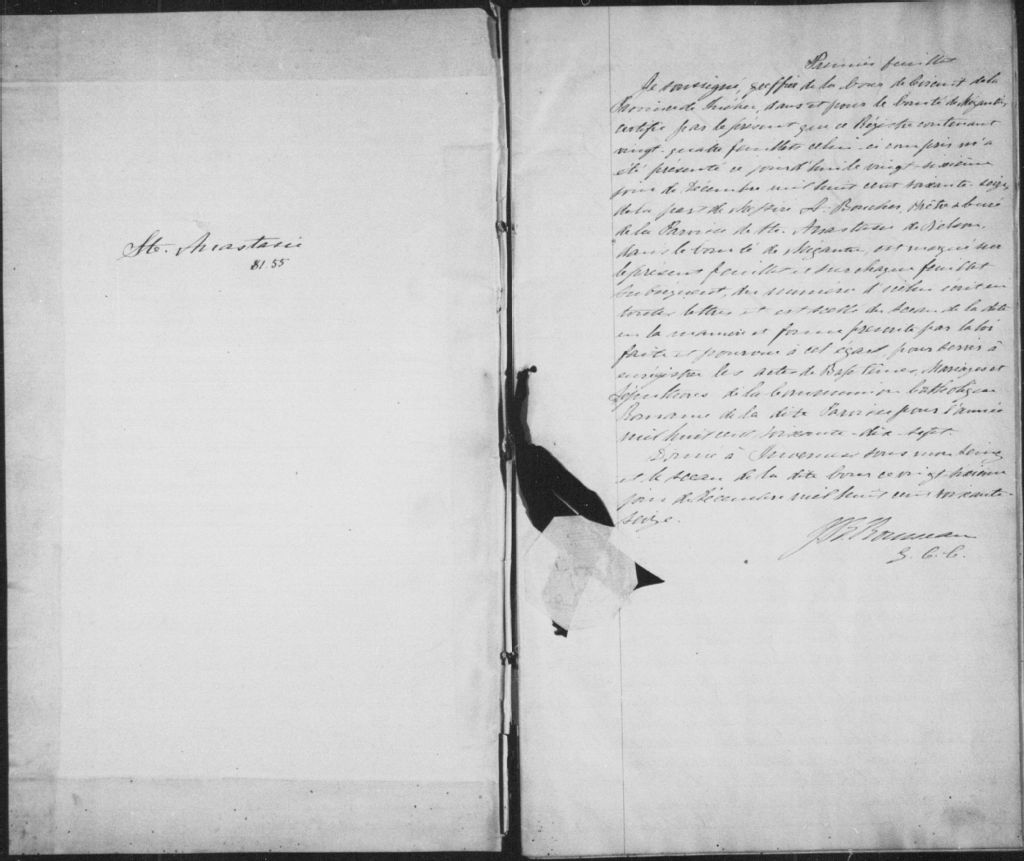 Ste. Anastasie
81.55
Premier feuillet
Je soussigné, greffier de la Cour de Circuit de la
Province de Québec, dans et pour le Comté de Mégantic,
certifie par le présent que ce Régistre contenant
vingt-quatre feuillets celui-ci compris m'a
été présenté ce jourd'hui le vingt-sixième
jour de Décembre mil huit cent soixante-seize,
de la part de Messire A. Boucher, Prêtre & Curé
de la Paroisse de Ste. Anastasie de Nelson,
dans le Comté de Mégantic, est marqué sur
le présent feuillet et sur chaque feuillet
subséquent, du numéro d'icelui écrit en
toutes lettres et est scellé du sceau de la dite
en la manière et forme prescrite par la loi
faite et pourvue à cet égard, pour servir à
enrégistrer les actes de Baptêmes, Mariages et
Sépultures de la Communion Catholique
Romaine de la dite Paroisse pour l'année
mil huit cent soixante-dix-sept.
Donné à Inverness sous mon seing
et le sceau de la dite Cour ce vingt sixième
jour de Décembre mil huit cent soixante-
seize.
Rousseau
G. C. C.